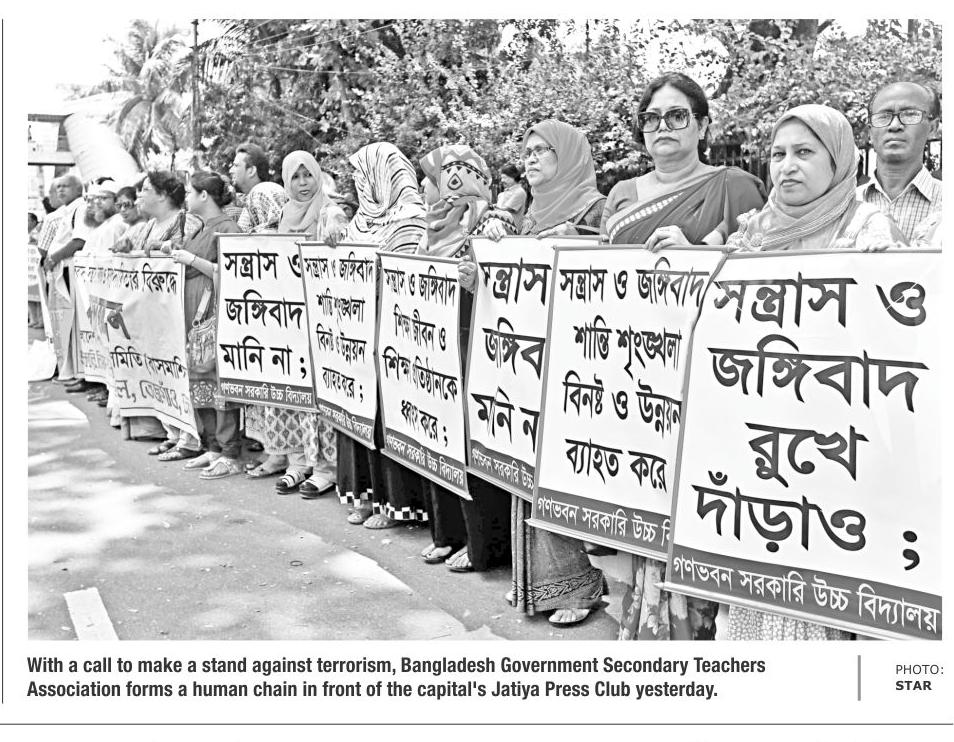 বিরুদ্ধে
সন্ত্রাস ও
জঙ্গিবাদ
মানি না ;
গণভবন সরকারি উচ্চ বিদ্যালয়
সন্ত্রাস ও জঙ্গিবাদ
শান্তি শৃংঙ্খলা
বিনষ্ট ও উন্নয়ন
ব্যাহত করে ;
সন্ত্রাস ও জঙ্গিবাদ
শিক্ষা জীবন ও
শিক্ষা প্রতিষ্ঠানকে
ধ্বংস করে ;
গণভবন সরকারি উচ্চ বিদ্যালয়
সন্ত্রাস
জঙ্গিব
মানি ন
গণভবন সরকারি উচ্চ
সন্ত্রাস ও জঙ্গিবাদ
শান্তি শৃংঙ্খলা
বিনষ্ট ও উন্নয়ন
ব্যাহত করে
গণভবন সরকারি উচ্চ বি
সন্ত্রাস ও
জঙ্গিবাদ
রুখে
দাঁড়াও ;
গণভবন সরকারি উচ্চ বিদ্যালয়
With a call to make a stand against terrorism, Bangladesh Government Secondary Teachers
Association forms a human chain in front of the capital's Jatiya Press Club yesterday.
PHOTO:
STAR